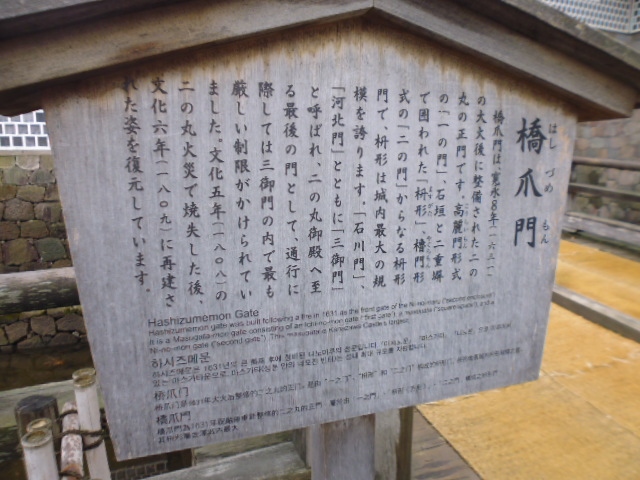 橋爪門
はし づめ もん
橋爪門は「寛永8年(一六三一)
の大火後に整備された二の
丸の正門です。高麗門形式
の「一の門」、石垣と二重塀
で囲われた「枡形」、櫓門形
式の「二の門」からなる枡形
門で、枡形は城内最大の規
模を誇ります。「石川門」、
「河北門」とともに「三御門」
と呼ばれ、二の丸御殿へ至
る最後の門として、通行に
際しては三御門の内で最も
厳しい制限がかけられてい
ました。文化五年(一八〇八)の
二の丸火災で焼失した後、
文化六年(一八〇九)に再建さ
れた姿を復元しています。
Hashizumemon Gate
Hashizumemon gate was built following a fire in 1631 as the front gate of the Ni-no-maru ("second enclosure").
It is a Masugata-mon gate consisting of an Ichi-no-mon gate ("first gate"), a masugata ("square space"), and a
Ni-no-mon gate ("second gate"). This masugata is Kanazawa Castle's largest.
하시즈메몬
橋爪门
橋爪門